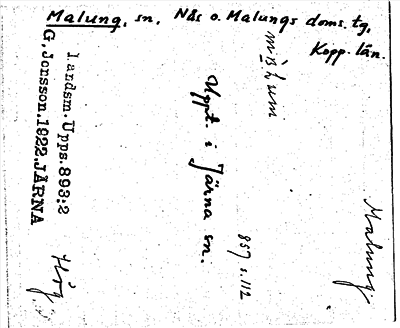 Malung, sn, Nås o. Malungs doms. tg,
Kopp. län.
Uppt. i Järna sn.
857 s. 112
Malung
Landsm. Upps. 893:2
G. Jonsson. 1922. JÄRNA
Hög